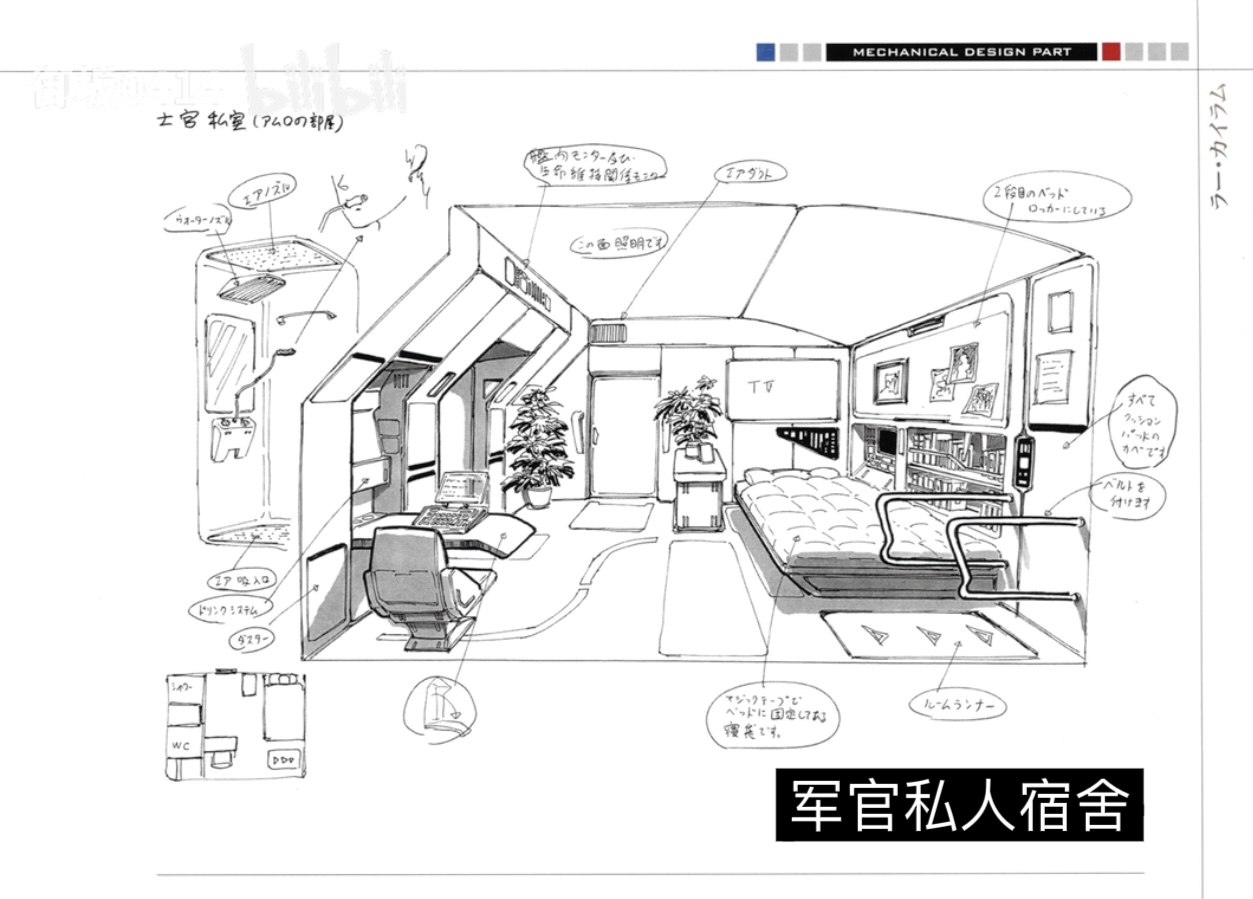 MECHANICAL DESIGN PART
bilibili
ラー・カイラム
士官 私室 (アムロの部屋)
エアノズル
ウォーターノズル
艦内モニター及び
生命維持関係モニター
エアダクト
この面 照明です
2段目のベッド
ロッカーにしている
TV
すべて
クッション
パッドの
カベです
ベルトを
付けます
エア吸入口
ドリンクシステム
ダスター
シャワー
WC
マジックテープで
ベッドに固定してある
寝袋です。
ルームランナー
军官私人宿舍